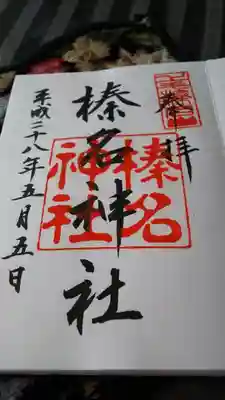 奉拝
榛名神社
榛名
神社
平成二十八年五月五日